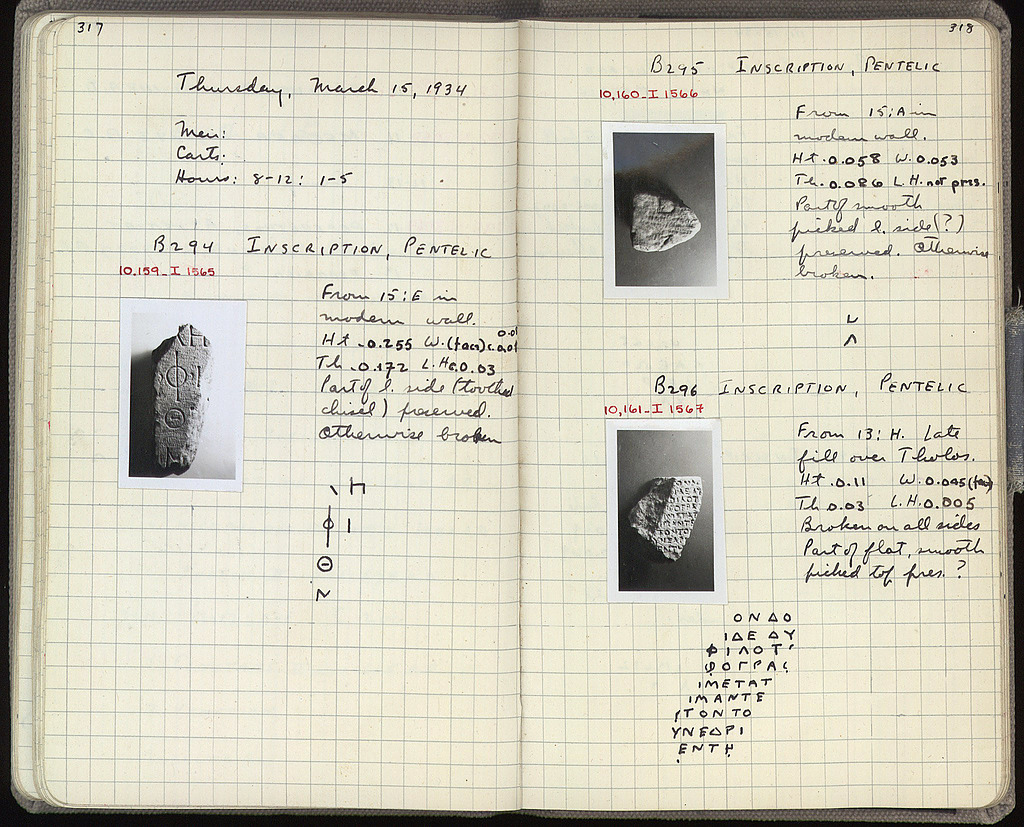 317
Thursday, March 15, 1934
Men:
Carts:
Hours: 8-12: 1-5
B294 INSCRIPTION, PENTELIC
10,159-I 1565
From 15:E in
modern wall.
Ht. 0.255 W. (face)
Th. 0.172 L.H. c. 0.03
Part of l. side (toothed
chisel) preserved.
Otherwise broken
Φ Ι
Θ
318
B295 INSCRIPTION, PENTELIC
10,160-I 1566
From 15:A in
modern wall.
Ht. 0.058 W. 0.053
Th. 0.086 L.H. not pres.
Part of smooth
picked l. side (?)
preserved. Otherwise
broken.
B296 INSCRIPTION, PENTELIC
10,161-I 1567
From 13:H. Late
fill over Tholos.
Ht. 0.11 W. 0.095 (face)
Th. 0.03 L.H. 0.005
Broken on all sides
Part of flat, smooth
picked top pres.?
ΟΝΔΟ
ΙΔΕΔΥ
ΦΙΛΟΤ
ΦΟΓΡΑΣ
ΙΜΕΤΑΤ
ΙΜΑΝΤΕ
ΤΟΝΤΟ
ΥΝΕΔΡΙ
ΕΝΤΗ